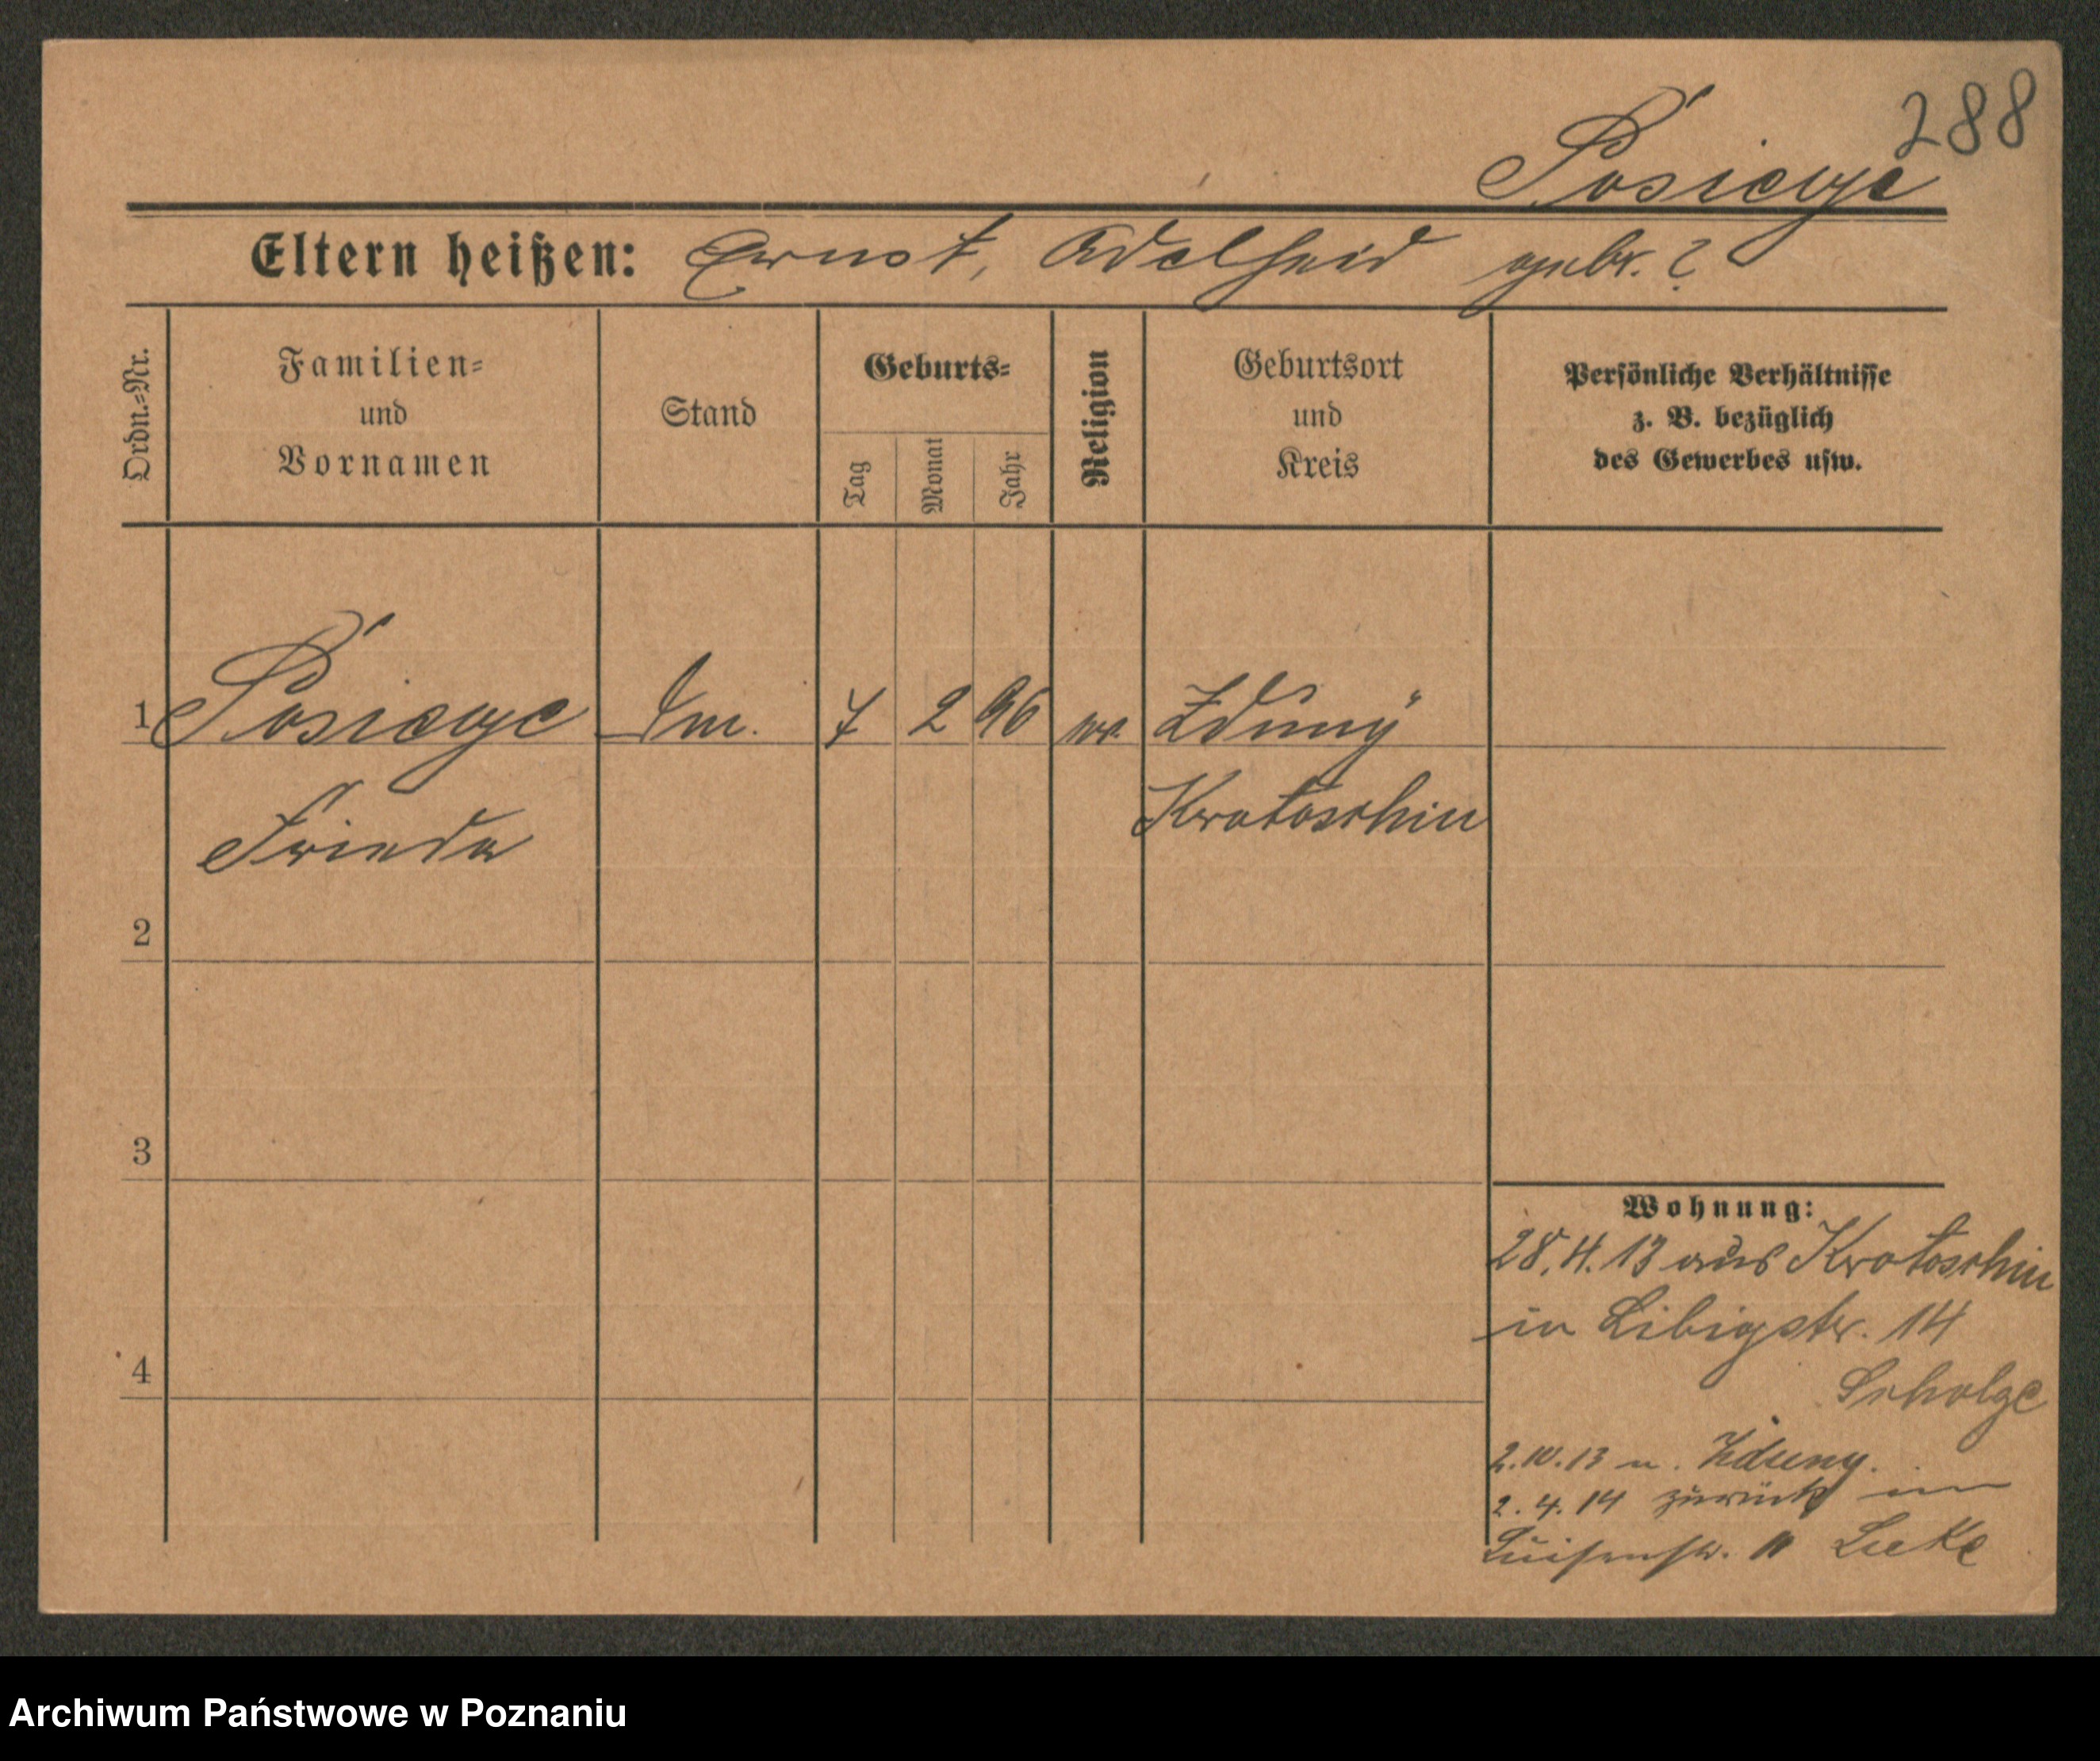 288
Posiege
Eltern heißen: Ernst, Adelheid gebr. ?
Ordn.=Nr.
Familien=
und
Vornamen
Stand
Geburts=
Tag
Monat
Jahr
Religion
Geburtsort
und
Kreis
Persönliche Verhältnisse
z. B. bezüglich
des Gewerbes usw.
1 Posiege 7 2 96 Zduny
Frieda Krotoschin
2
3
4
Wohnung:
28.4.13 aus Krotoschin
in Libigstr. 14
Scholze
2.10.13 n. Zduny.
2.4.14 zurück in
Luisenstr. 11
Archiwum Państwowe w Poznaniu